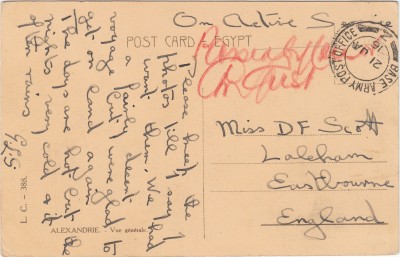 On Active Service
POST CARD EGYPT
BASE ARMY POST OFFICE
21
16
Please keep the
photos till I say I
want them. We had
a fairly decent
voyage but were glad to
get on land again.
The days are hot but the
nights very cold & it
often rains
Miss D F Scott
Laleham
Eastbourne
England
L. C. - 388.
ALEXANDRIE. Vue générale